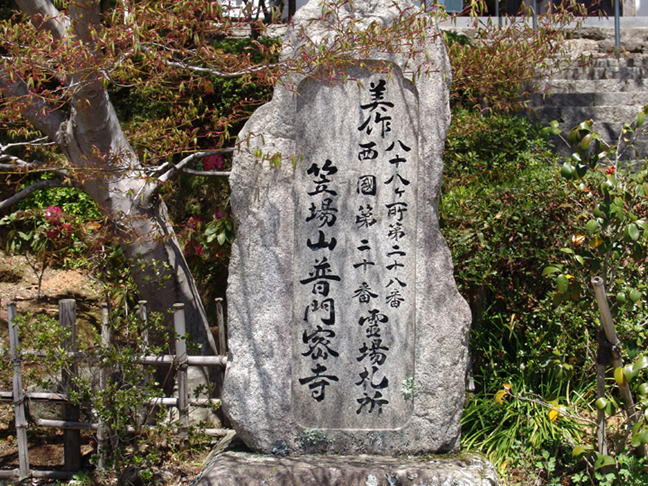 美作
八十八ヶ所第二十八番
西國第二十番
霊場札所
笠場山普門密寺